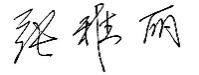 张雅丽